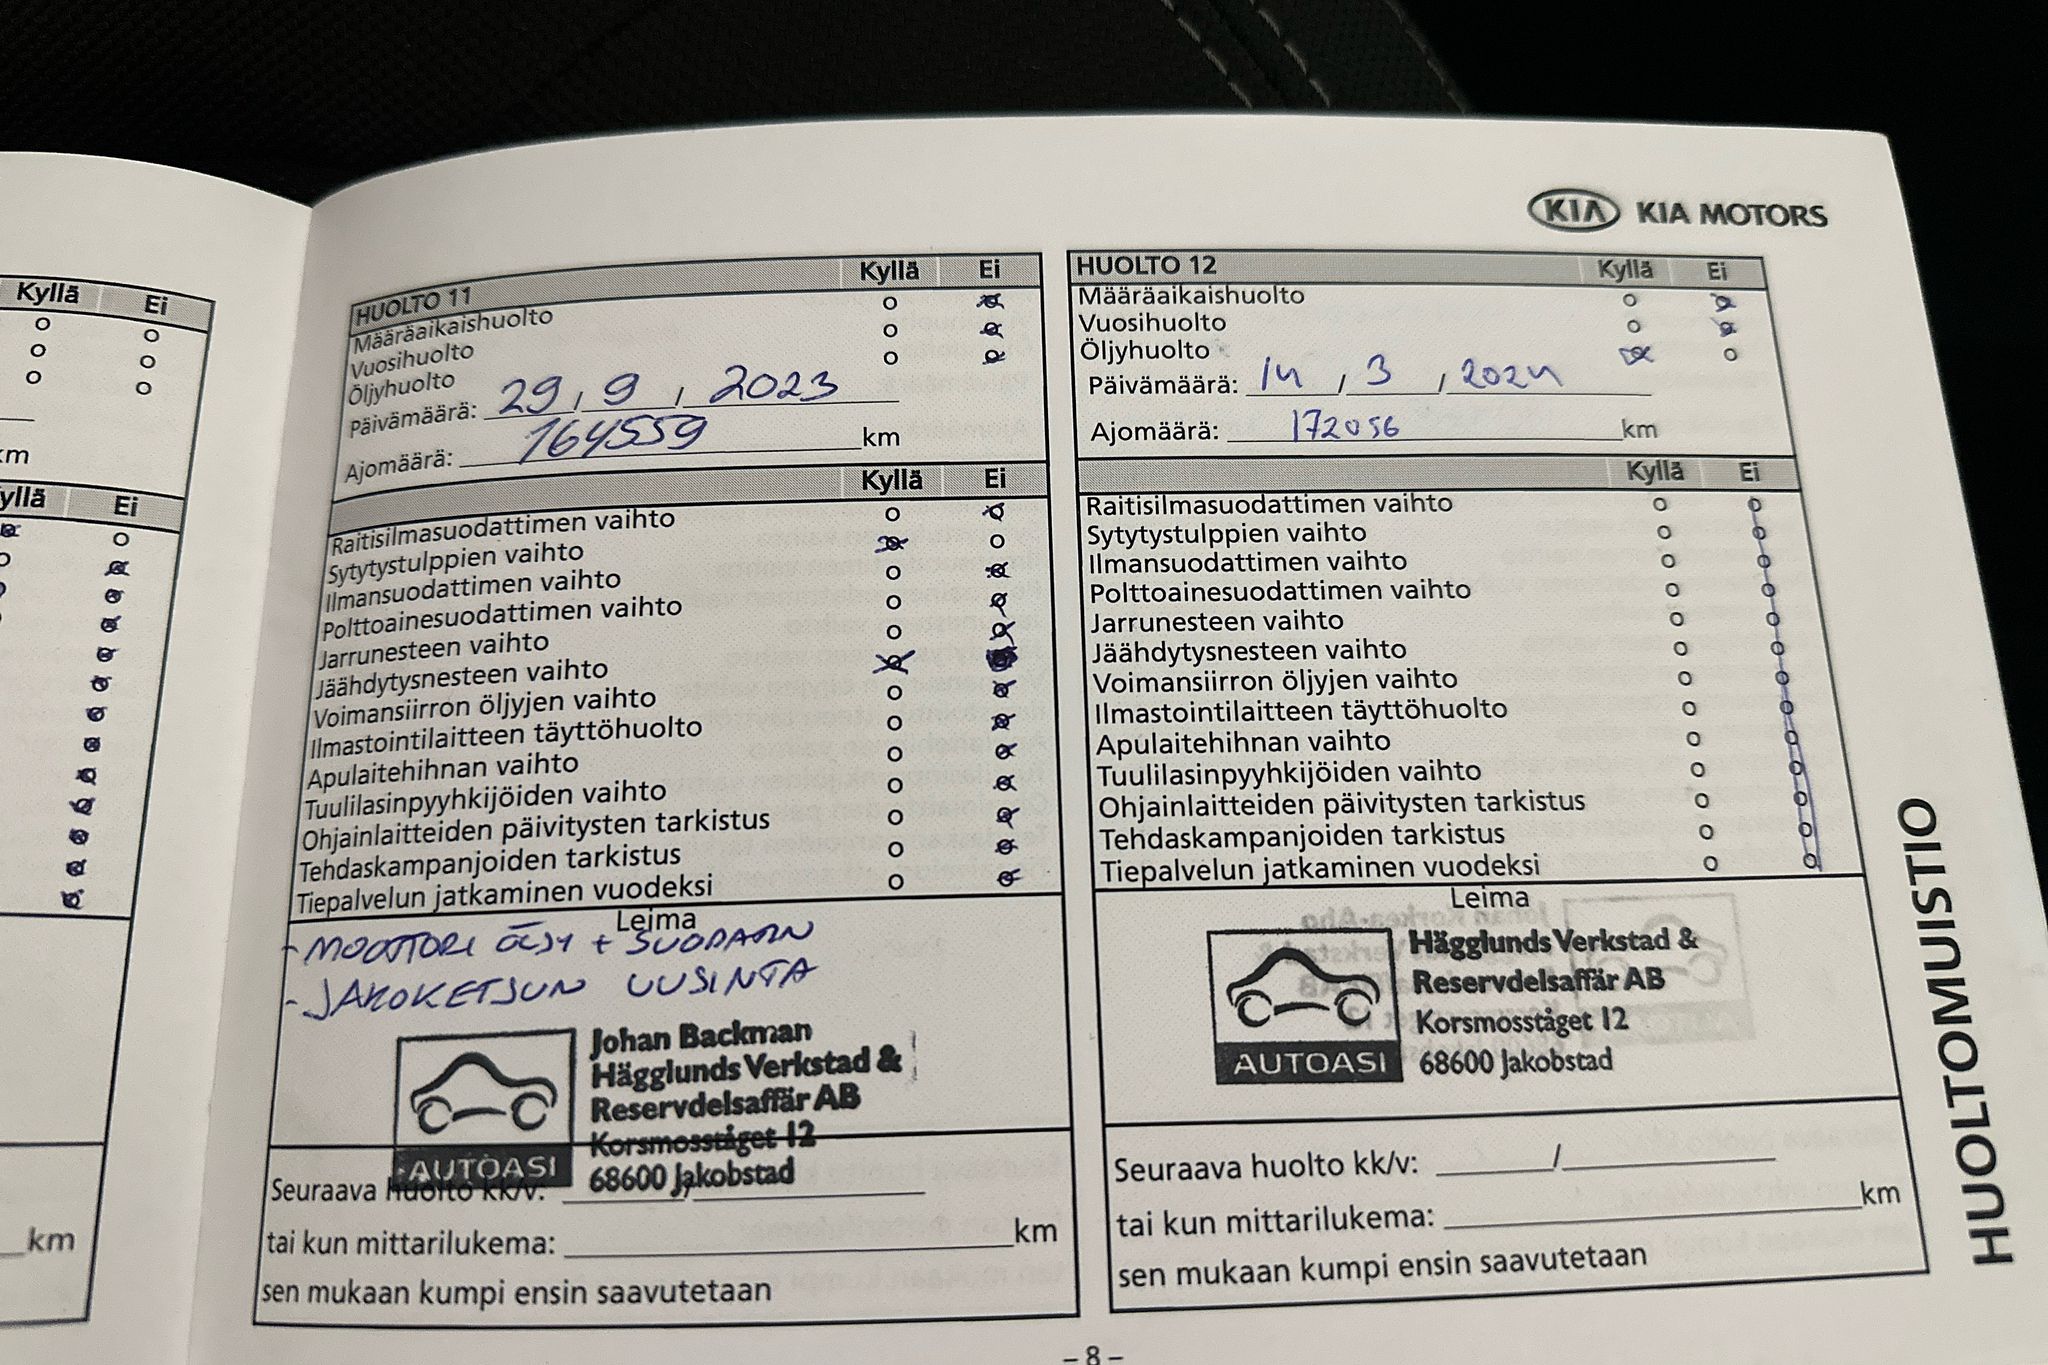 KIA KIA MOTORS
Kyllä Ei
km
Kyllä Ei
km
HUOLTO 11 Kyllä Ei
Määräaikaishuolto
Vuosihuolto
Öljyhuolto
Päivämäärä: 29 / 9 / 2023
Ajomäärä: 164559 km
Kyllä Ei
Raitisilmasuodattimen vaihto
Sytytystulppien vaihto
Ilmansuodattimen vaihto
Polttoainesuodattimen vaihto
Jarrunesteen vaihto
Jäähdytysnesteen vaihto
Voimansiirron öljyjen vaihto
Ilmastointilaitteen täyttöhuolto
Apulaitehihnan vaihto
Tuulilasinpyyhkijöiden vaihto
Ohjainlaitteiden päivitysten tarkistus
Tehdaskampanjoiden tarkistus
Tiepalvelun jatkaminen vuodeksi
Leima
- MOOTTORI ÖLJY + SUODATIN
- JAKOKETJUN UUSINTA
Johan Backman
Hägglunds Verkstad &
Reservdelsaffär AB
Korsmosståget 12
68600 Jakobstad
AUTOASI
Seuraava huolto kk/v: /
tai kun mittarilukema: km
sen mukaan kumpi ensin saavutetaan
HUOLTO 12 Kyllä Ei
Määräaikaishuolto
Vuosihuolto
Öljyhuolto
Päivämäärä: 14 / 3 / 2024
Ajomäärä: 172056 km
Kyllä Ei
Raitisilmasuodattimen vaihto
Sytytystulppien vaihto
Ilmansuodattimen vaihto
Polttoainesuodattimen vaihto
Jarrunesteen vaihto
Jäähdytysnesteen vaihto
Voimansiirron öljyjen vaihto
Ilmastointilaitteen täyttöhuolto
Apulaitehihnan vaihto
Tuulilasinpyyhkijöiden vaihto
Ohjainlaitteiden päivitysten tarkistus
Tehdaskampanjoiden tarkistus
Tiepalvelun jatkaminen vuodeksi
Leima
Hägglunds Verkstad &
Reservdelsaffär AB
Korsmosståget 12
68600 Jakobstad
AUTOASI
Seuraava huolto kk/v: /
tai kun mittarilukema: km
sen mukaan kumpi ensin saavutetaan
HUOLTOMUISTIO
– 8 –